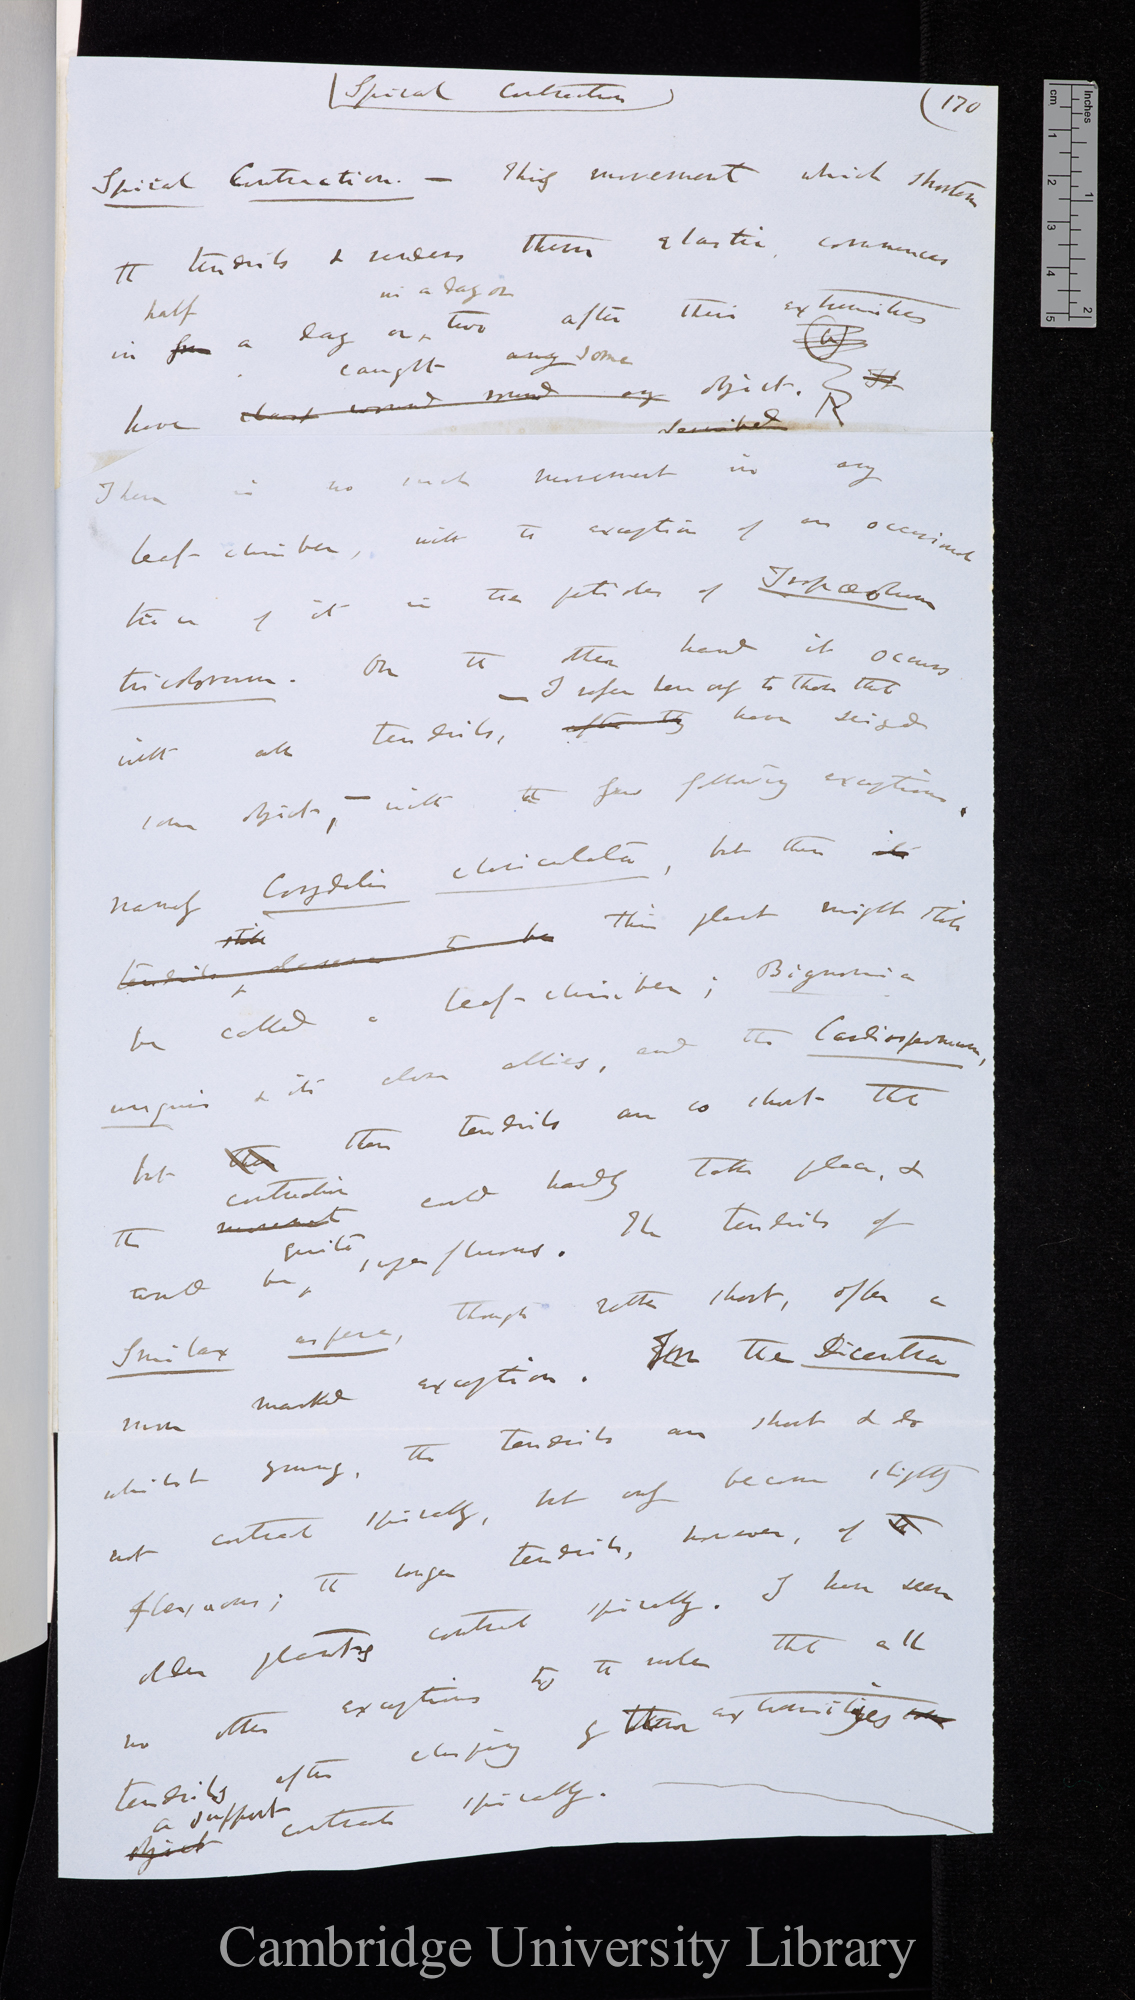 (Spiral Contraction)
(170
Spiral Contraction. — This movement which shortens
the tendrils & renders them elastic, commences
half in a day or
in a day or, two after their extremities
caught any some
have clasp wound round any object. It
described
There is no such movement in any
leaf-climber, with the exception of an occasional
trace of it in the petioles of Tropæolum
tricolorum. On the other hand it occurs
— I refer here only to those that
with all tendrils, after they have seized
some object, — with the few following exceptions,
namely Corydalis claviculata, but then its
still
tendrils deserve to be this plant might still
be called a leaf-climber; Bignonia
unguis & its close allies, and the Cardiospermum,
but these their tendrils are so short that
contraction
the movement could hardly take place, &
quite
would be, superfluous. The tendrils of
Smilax aspera, though rather short, offer a
more marked exception. In the Dicentra
whilst young, the tendrils are short & do
not contract spirally, but only become slightly
flexuous; the longer tendrils, however, of the
older plants contract spirally. I have seen
no other exceptions to the rule that all
tendrils after clasping by their extremities
a support
object contract spirally.
Inches
cm
1
2
3
4
5
1
2
Cambridge University Library